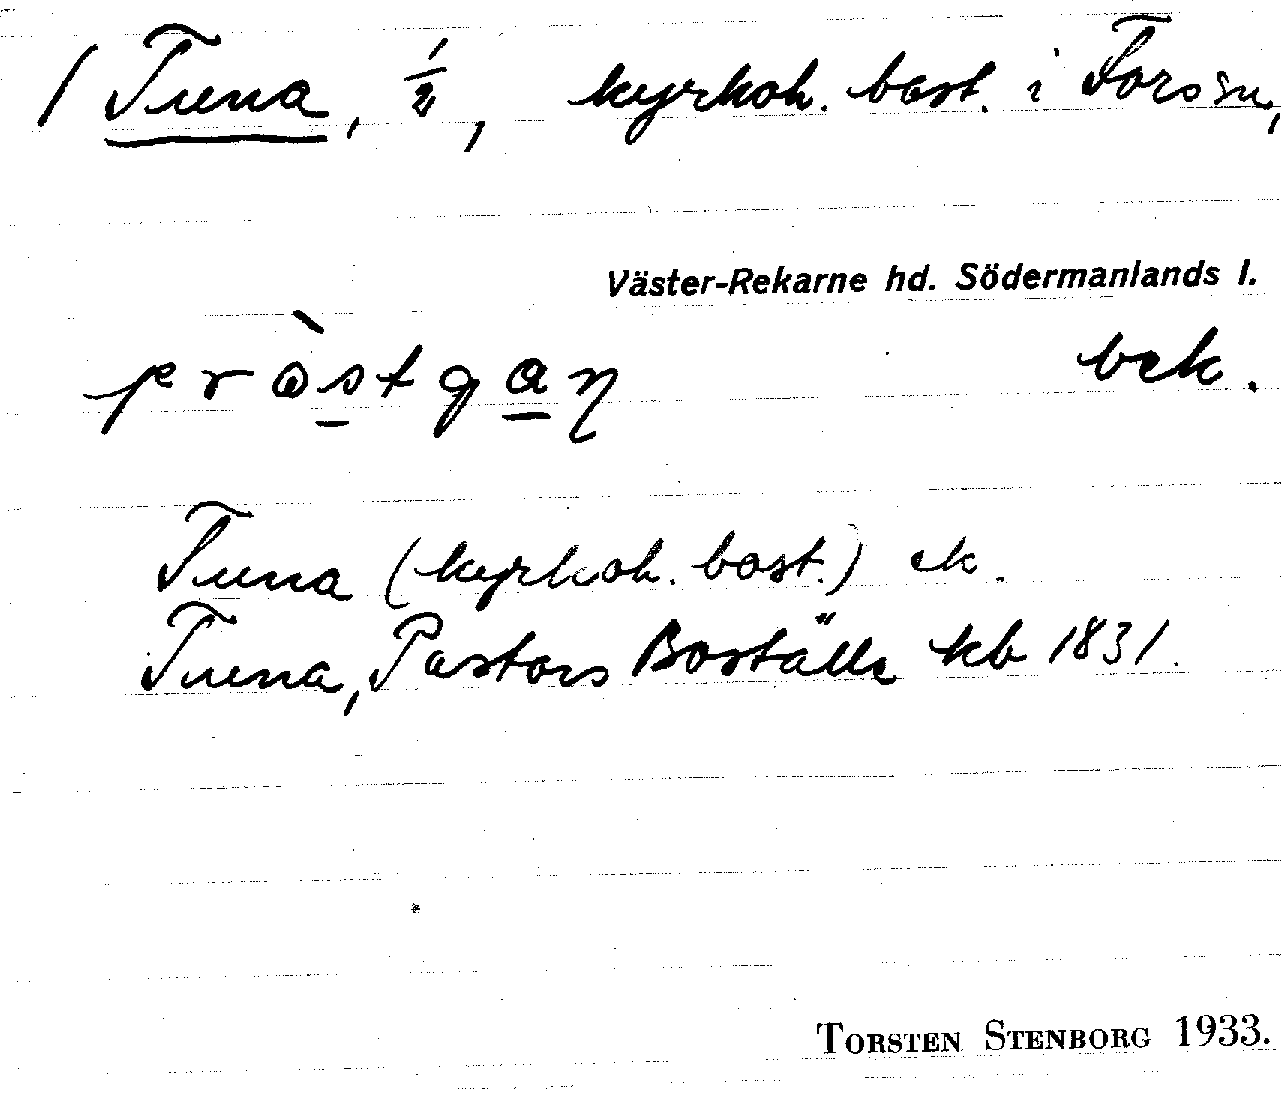 / Tuna, ½, kyrkoh. bost. i Forssn,
Väster-Rekarne hd. Södermanlands l.
pròstgaɳ bek.
Tuna (kyrkoh. bost.) ek.
Tuna, Pastors Boställe kb 1831.
TORSTEN STENBORG 1933.